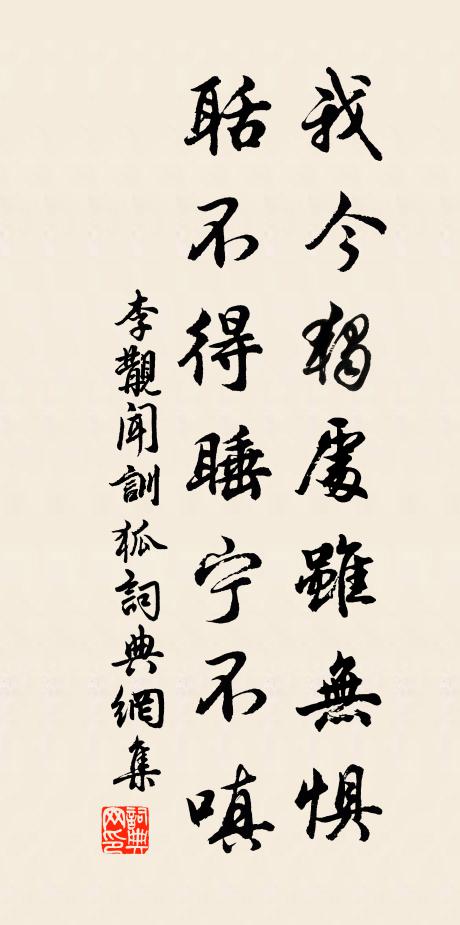 我今獨處雖無懼
聒不得睡宁不嗔
李覯聞訓狐詞典網集
詞典网印